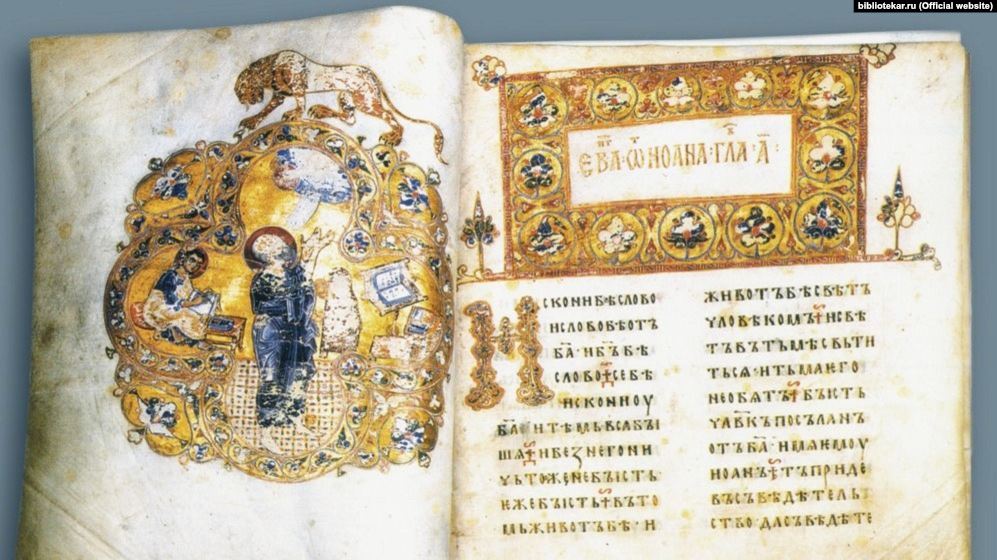 bibliotekar.ru (Official website)
ЕВА·Ѿ ИОАНА·ГЛА·А҃·
ИСКОНИБѢСЛОВО
ИСЛОВОБѢОТЪ
БА҃·ИБЪ҃БѢ
СЛОВО·СЕБѢ
ИСКОНИОУ
БА҃·ИТѢМЬВСѦБЫ
ШѦ·ИБЕЗНЕГОНИ
ЧЬТОЖЕНЕБЫСТЬ
ѤЖЕБЫСТЬ·ВЪТО
МЬЖИВОТЪБѢ·И
ЖИВОТЪБѢСВѢТЪ
ЧЛОВѢКОМЪ·ИСВѢ
ТЪВЪТЬМѢСВЬТИ
ТЬСѦ·ИТЬМАѤГО
НЕОБѦТЪ·БЫСТЬ
ЧЛВ҃КЪПОСЪЛАНЪ
ОТЪБА҃·ИМѦѤМОУ
ИОАНЪ·ТЪПРИДЕ
ВЪСЪВѢДѢТЕЛЬ
СТВО·ДАСЪВѢДѢТЕ